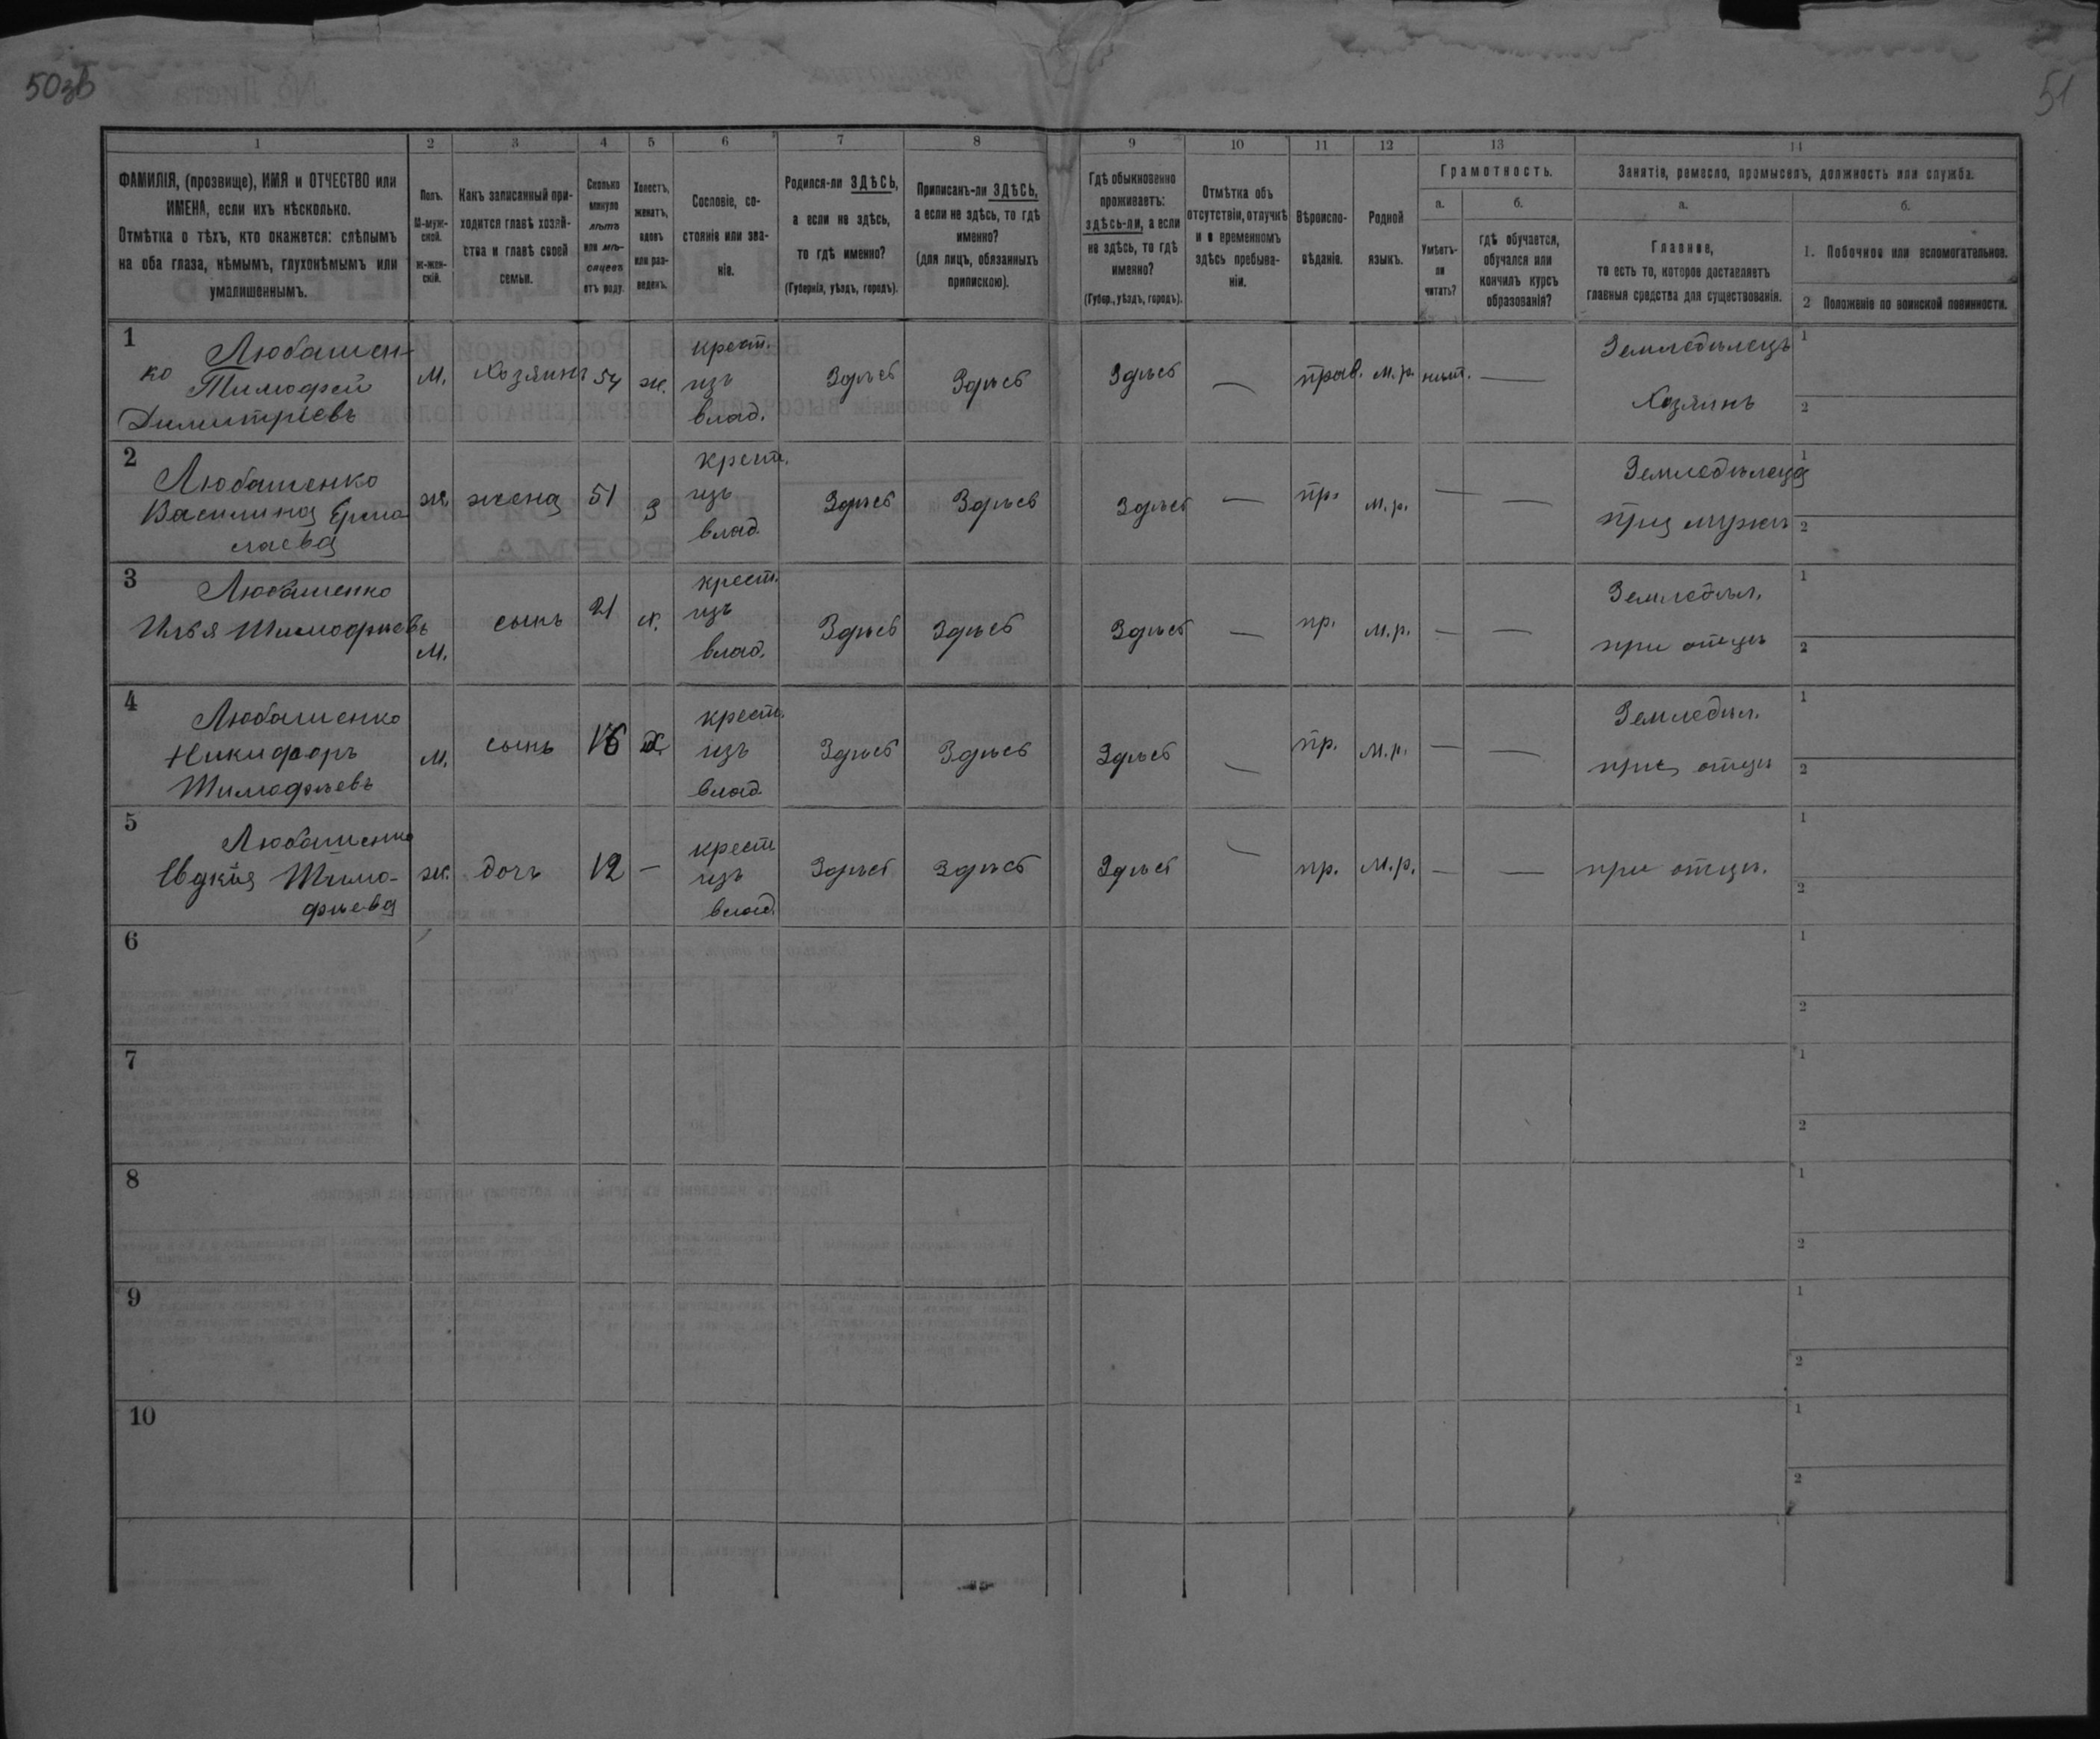 50зв
51
1 2 3 4 5 6 7 8 9 10 11 12 13 14
ФАМИЛІЯ, (прозвище), ИМЯ и ОТЧЕСТВО или
ИМЕНА, если ихъ нѣсколько.
Отмѣтка о тѣхъ, кто окажется: слѣпымъ
на оба глаза, нѣмымъ, глухонѣмымъ или
умалишеннымъ.
Полъ.
М-муж-
ской.
ж-жен-
скій.
Какъ записанный при-
ходится главѣ хозяй-
ства и главѣ своей
семьи.
Сколько
минуло
лѣтъ
или мѣ-
сяцевъ
отъ роду.
Холостъ,
женатъ,
вдовъ
или раз-
веденъ.
Сословіе, со-
стояніе или зва-
ніе.
Родился-ли ЗДѢСЬ,
а если не здѣсь,
то гдѣ именно?
(Губернія, уѣздъ, городъ).
Приписанъ-ли ЗДѢСЬ,
а если не здѣсь, то гдѣ
именно?
(для лицъ, обязанныхъ
припискою).
Гдѣ обыкновенно
проживаетъ:
здѣсь-ли, а если
не здѣсь, то гдѣ
именно?
(Губер., уѣздъ, городъ).
Отмѣтка объ
отсутствіи, отлучкѣ
и о временномъ
здѣсь пребыва-
ніи.
Вѣроиспо-
вѣданіе.
Родной
языкъ.
Грамотность.
а.
Умѣетъ-
ли
читать?
б.
гдѣ обучается,
обучался или
кончилъ курсъ
образованія?
Занятіе, ремесло, промыселъ, должность или служба.
а.
Главное,
то есть то, которое доставляетъ
главныя средства для существованія.
б.
1. Побочное или вспомогательное.
2 Положеніе по воинской повинности.
1
Любашен-
ко Тимофей
Димитріевъ
М. Хозяинъ 54 ж.
крест.
изъ
влад.
Здѣсь Здѣсь Здѣсь — прав. м.р. нѣт. —
Земледѣлецъ
Хозяинъ
1
2
2
Любашенко
Василина Ермо-
лаева
ж. жена 51 З
крест.
изъ
влад.
Здѣсь Здѣсь Здѣсь — пр. м.р. — —
Земледѣлецъ
при мужѣ
1
2
3
Любашенко
Илья Тимофѣевъ
М. сынъ 21 х.
крест.
изъ
влад.
Здѣсь Здѣсь Здѣсь — пр. м.р. — —
Земледѣл.
при отцѣ
1
2
4
Любашенко
Никифоръ
Тимофѣевъ
М. сынъ 16 х
крест.
изъ
влад.
Здѣсь Здѣсь Здѣсь — пр. м.р. — —
Земледѣл.
при отцѣ
1
2
5
Любашенко
Евдкія Тимо-
фѣева
ж. дочъ 12 —
крест
изъ
влад.
Здѣсь Здѣсь Здѣсь — пр. м.р. — —
при отцѣ.
1
2
6
1
2
7
1
2
8
1
2
9
1
2
10
1
2